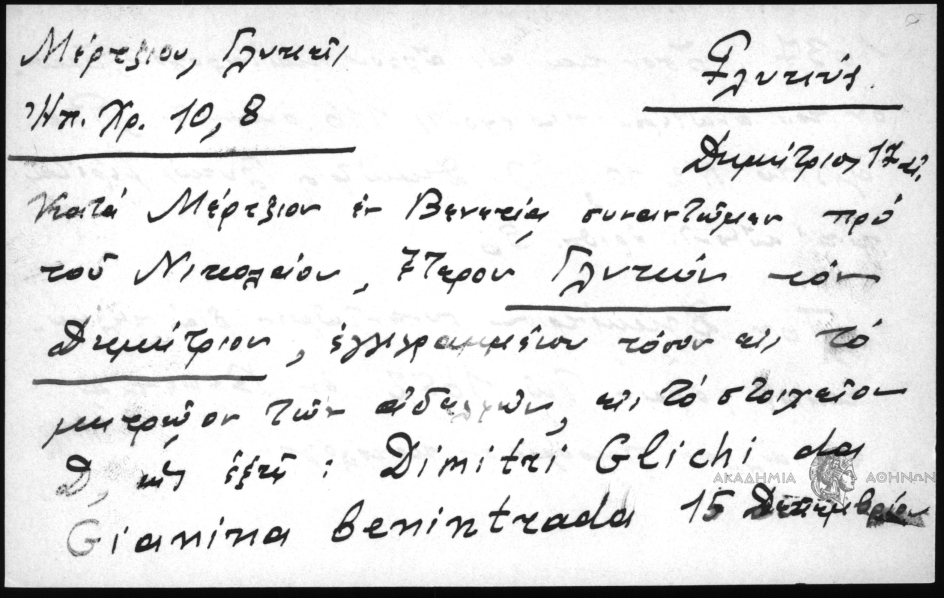 Μέρτζιου, Γλυκεῖς
Ἠπ. Χρ. 10, 8
Γλυκύς.
Δημήτριος, 17 αἰ.
Κατά Μέρτζιον ἐν Βενετίᾳ συναντῶμεν πρό
τοῦ Νικολάου, ἕτερον Γλυκύν τόν
Δημήτριον, ἐγγεγραμμένον τόσον εἰς τό
μητρῷον τῶν ἀδελφῶν, εἰς τό στοιχεῖον
D, ὡς ἑξῆς : Dimitri Glichi da
Gianina benintrada 15 Δεκεμβρίου
ΑΚΑΔΗΜΙΑ ΑΘΗΝΩΝ